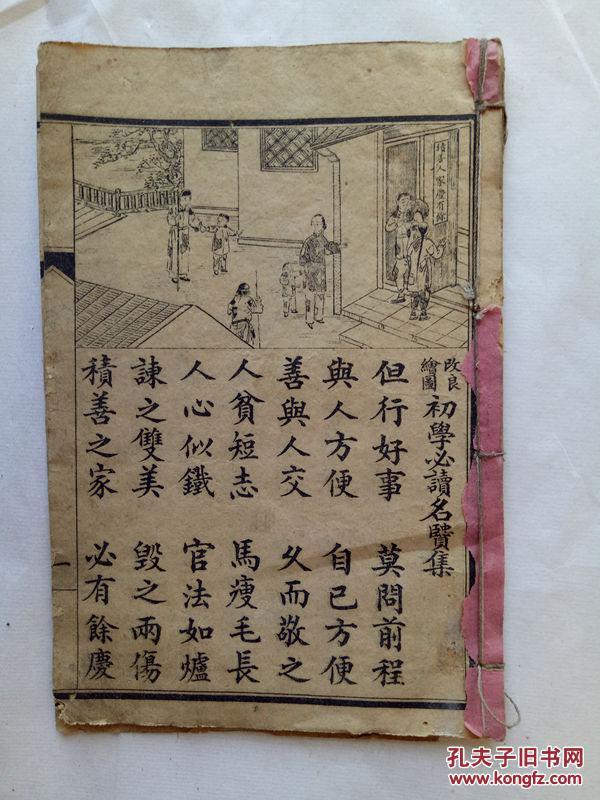 積善人家慶有餘
改良
繪圖
初學必讀名賢集
但行好事 莫問前程
與人方便 自已方便
善與人交 久而敬之
人貧短志 馬瘦毛長
人心似鐵 官法如爐
諫之雙美 毀之兩傷
積善之家 必有餘慶
一
孔夫子旧书网
www.kongfz.com